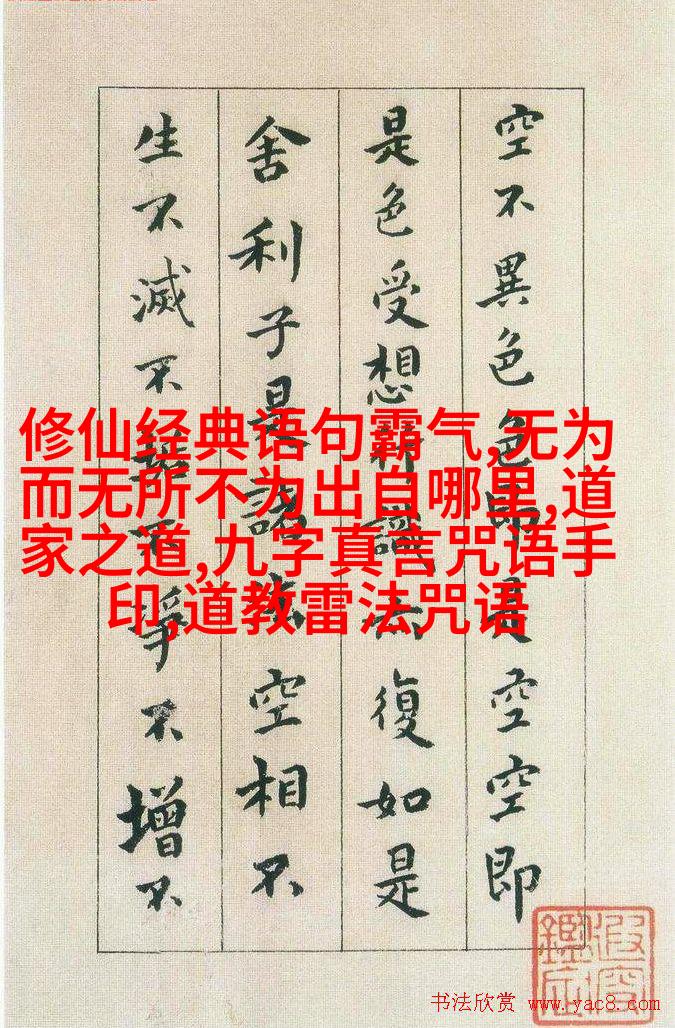 空不異色色即是空空即
是色受想行識亦復如是
舍利子是諸法空相不
生不滅不垢不淨不增不
修仙经典语句霸气,无为
而无所不为出自哪里,道
家之道,九字真言咒语手
印,道教雷法咒语
书法欣赏 www.yac8.com